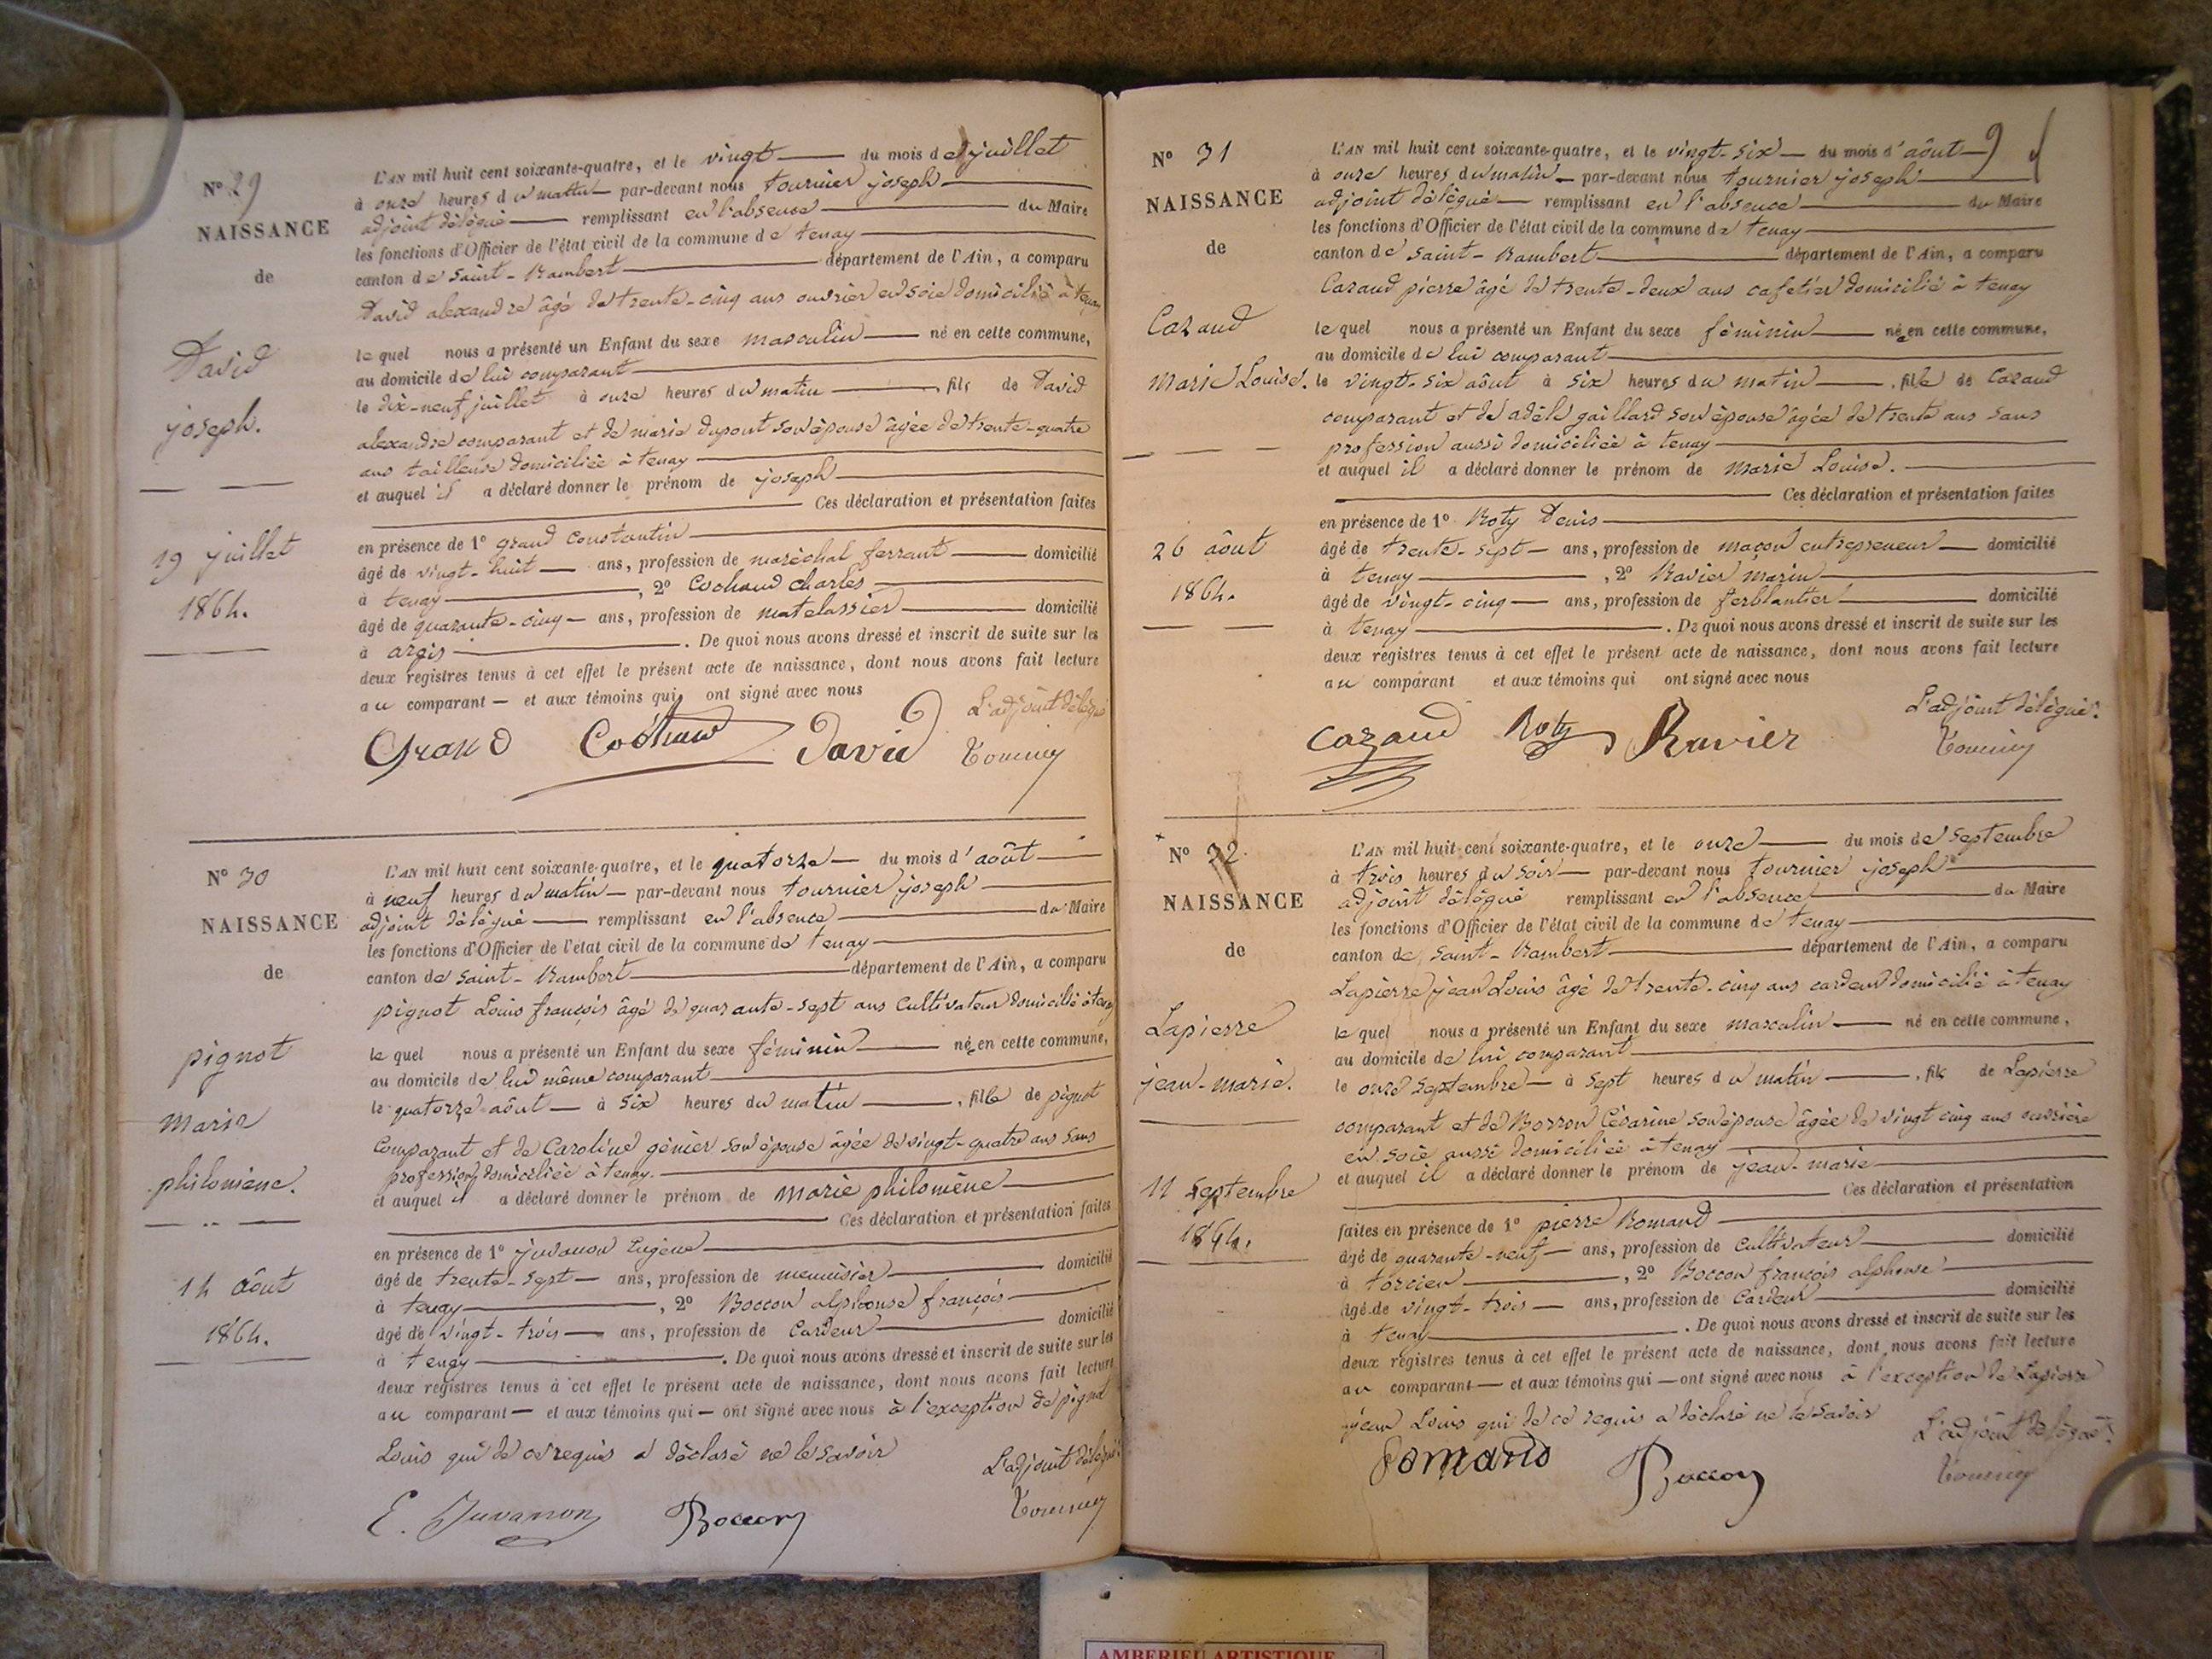 N° 29
NAISSANCE
de
David
joseph.
19 juillet
1864.
L'AN mil huit cent soixante-quatre, et le vingt du mois de juillet
à onze heures du matin par-devant nous tournier joseph
adjoint délégué remplissant en l'absence du Maire
les fonctions d'Officier de l'état civil de la commune de tenay
canton de saint-Rambert département de l'Ain, a comparu
David alexandre âgé de trente-cinq ans ouvrier en soie domicilié à tenay
lequel nous a présenté un Enfant du sexe masculin né en cette commune,
au domicile de lui comparant
le dix-neuf juillet à onze heures du matin, fils de David
alexandre comparant et de marie dupont son épouse âgée de trente-quatre
ans tailleuse domiciliée à tenay
et auquel il a déclaré donner le prénom de joseph
Ces déclaration et présentation faites
en présence de 1° grand constantin
âgé de vingt-huit ans, profession de maréchal ferrant domicilié
à tenay, 2° Cochaud charles
âgé de quarante-cinq ans, profession de matelassier domicilié
à argis. De quoi nous avons dressé et inscrit de suite sur les
deux registres tenus à cet effet le présent acte de naissance, dont nous avons fait lecture
au comparant et aux témoins qui ont signé avec nous
L'adjoint délégué
Grand Cochaud David
N° 30
NAISSANCE
de
pignot
marie
philomène.
14 août
1864.
L'AN mil huit cent soixante-quatre, et le quatorze du mois d'août
à neuf heures du matin par-devant nous tournier joseph
adjoint délégué remplissant en l'absence du Maire
les fonctions d'Officier de l'état civil de la commune de tenay
canton de saint-Rambert département de l'Ain, a comparu
pignot Louis françois âgé de quarante-sept ans cultivateur domicilié à tenay
lequel nous a présenté un Enfant du sexe féminin née en cette commune,
au domicile de lui même comparant
le quatorze août à six heures du matin, fille de pignot
comparant et de Caroline génier son épouse âgée de vingt-quatre ans sans
profession domiciliée à tenay.
et auquel il a déclaré donner le prénom de marie philomène
Ces déclaration et présentation faites
en présence de 1° juvanon Eugène
âgé de trente-sept ans, profession de menuisier domicilié
à tenay, 2° Boccon alphonse françois
âgé de vingt-trois ans, profession de cardeur domicilié
à tenay. De quoi nous avons dressé et inscrit de suite sur les
deux registres tenus à cet effet le présent acte de naissance, dont nous avons fait lecture
au comparant et aux témoins qui ont signé avec nous à l'exception de pignot
Louis qui de ce requis a déclaré ne le savoir
L'adjoint délégué
E. Juvanon Boccon
N° 31
NAISSANCE
de
Cazaud
marie Louise.
26 août
1864.
L'AN mil huit cent soixante-quatre, et le vingt-six du mois d'août
à onze heures du matin par-devant nous tournier joseph
adjoint délégué remplissant en l'absence du Maire
les fonctions d'Officier de l'état civil de la commune de tenay
canton de saint-Rambert département de l'Ain, a comparu
Cazaud pierre âgé de trente-deux ans cafetier domicilié à tenay
lequel nous a présenté un Enfant du sexe féminin née en cette commune,
au domicile de lui comparant
le vingt-six août à six heures du matin, fille de Cazaud
comparant et de adèle gaillard son épouse âgée de trente ans sans
profession aussi domiciliée à tenay
et auquel il a déclaré donner le prénom de marie Louise.
Ces déclaration et présentation faites
en présence de 1° Roty Denis
âgé de trente-sept ans, profession de maçon entrepreneur domicilié
à tenay, 2° Ravier marin
âgé de vingt-cinq ans, profession de ferblantier domicilié
à tenay. De quoi nous avons dressé et inscrit de suite sur les
deux registres tenus à cet effet le présent acte de naissance, dont nous avons fait lecture
au comparant et aux témoins qui ont signé avec nous
L'adjoint délégué.
Cazaud Roty Ravier
N° 32
NAISSANCE
de
Lapierre
jean-marie.
11 septembre
1864.
L'AN mil huit cent soixante-quatre, et le onze du mois de septembre
à trois heures du soir par-devant nous tournier joseph
adjoint délégué remplissant en l'absence du Maire
les fonctions d'Officier de l'état civil de la commune de tenay
canton de saint-Rambert département de l'Ain, a comparu
Lapierre jean Louis âgé de trente-cinq ans cardeur domicilié à tenay
lequel nous a présenté un Enfant du sexe masculin né en cette commune,
au domicile de lui comparant
le onze septembre à sept heures du matin, fils de Lapierre
comparant et de Borron Césarine son épouse âgée de vingt cinq ans ouvrière
en soie aussi domiciliée à tenay
et auquel il a déclaré donner le prénom de jean-marie
Ces déclaration et présentation
faites en présence de 1° pierre Romand
âgé de quarante-neuf ans, profession de cultivateur domicilié
à torcieu, 2° Boccon françois alphonse
âgé de vingt-trois ans, profession de cardeur domicilié
à tenay. De quoi nous avons dressé et inscrit de suite sur les
deux registres tenus à cet effet le présent acte de naissance, dont nous avons fait lecture
au comparant et aux témoins qui ont signé avec nous à l'exception de Lapierre
jean Louis qui de ce requis a déclaré ne le savoir
L'adjoint délégué.
Romand Boccon
AMBERIEU ARTISTIQUE